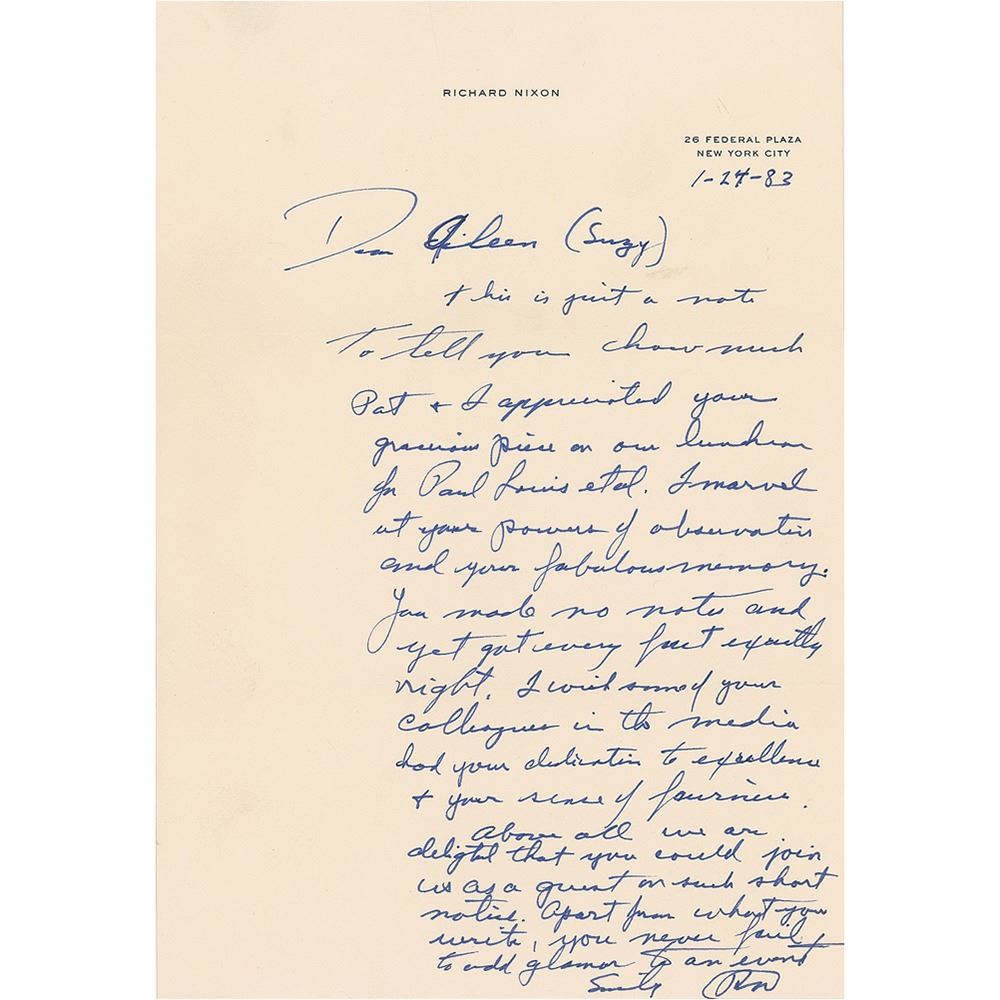 RICHARD NIXON
26 FEDERAL PLAZA
NEW YORK CITY
1-24-83
Dear Aileen (Suzy)
This is just a note
to tell you how much
Pat + I appreciated your
gracious piece on our luncheon
for Paul Louis et al. I marvel
at your powers of observation
and your fabulous memory.
You made no notes and
yet got every fact exactly
right. I wish some of your
colleagues in the media
had your dedication to excellence
+ your sense of fairness.
Above all we are
delighted that you could join
us as a guest on such short
notice. Apart from what you
write, you never fail
to add glamor to an event
Sincerely RN